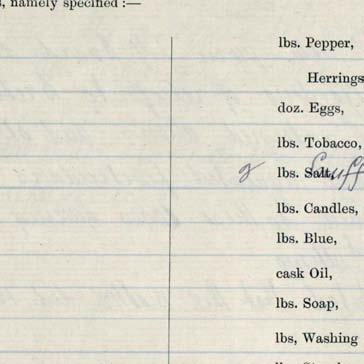 , namely specified :—
lbs. Pepper,
Herrings
doz. Eggs,
lbs. Tobacco,
lbs. Salt, Snuff
lbs. Candles,
lbs. Blue,
cask Oil,
lbs. Soap,
lbs, Washing